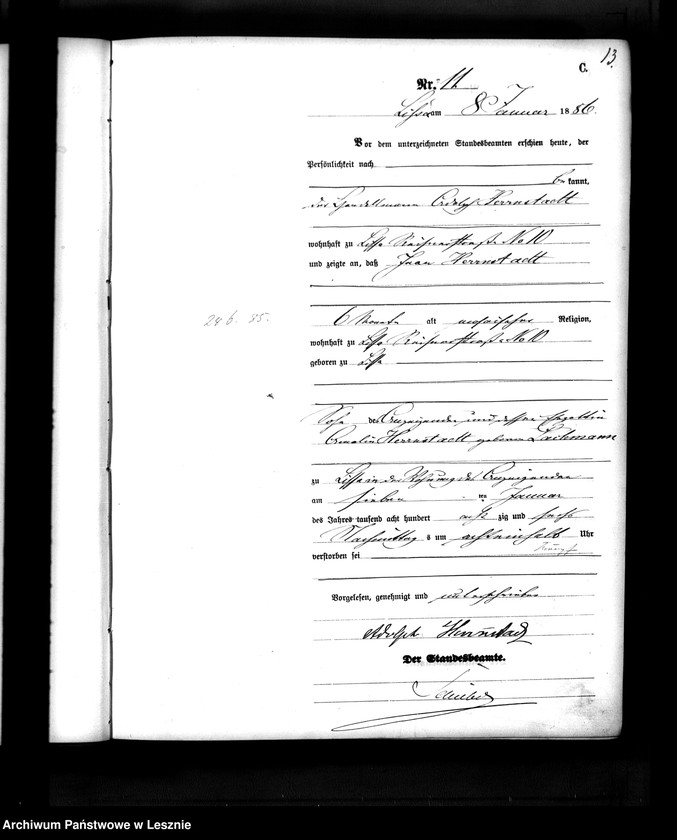 13.
C.
Nr. 11
Lissa am 8 Januar 1886.
Vor dem unterzeichneten Standesbeamten erschien heute, der
Persönlichkeit nach
be kannt,
der Handelsmann Adolph Herrnstadt
wohnhaft zu Lissa No 10
und zeigte an, daß Herrnstadt
24 6. 85.
6 Monate alt mosaischer Religion,
wohnhaft zu Lissa No 10
geboren zu Lissa
Sohn des Anzeigenden und dessen Ehegattin
Herrnstadt geborene Lachmann
zu Lissa in der Wohnung des Anzeigenden
am sieben ten Januar
des Jahres tausend acht hundert acht zig und sechs
Nachmittag s um achteinhalb Uhr
verstorben sei
Vorgelesen, genehmigt und unterschrieben
Adolph Herrnstadt
Der Standesbeamte.
Archiwum Państwowe w Lesznie